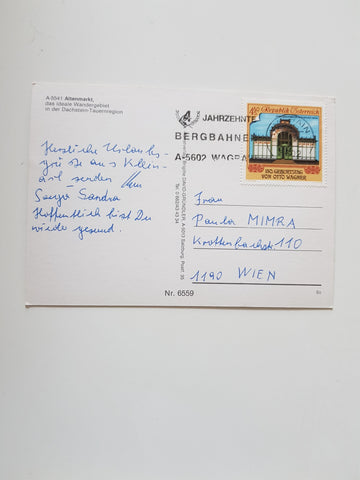 A-5541 Altenmarkt,
das ideale Wandergebiet
in der Dachstein-Tauernregion
Herzliche Urlaubs-
grüße aus Klein-
arl senden
Sonja Sandra
Hoffentlich bist Du
wieder gesund.
4 JAHRZEHNTE
BERGBAHNEN
A-5602 WAGRA
Republik Österreich
150. GEBURTSTAG
VON OTTO WAGNER
Frau
Paula MIMRA
Krottenbachstr. 110
1190 WIEN
Nr. 6559